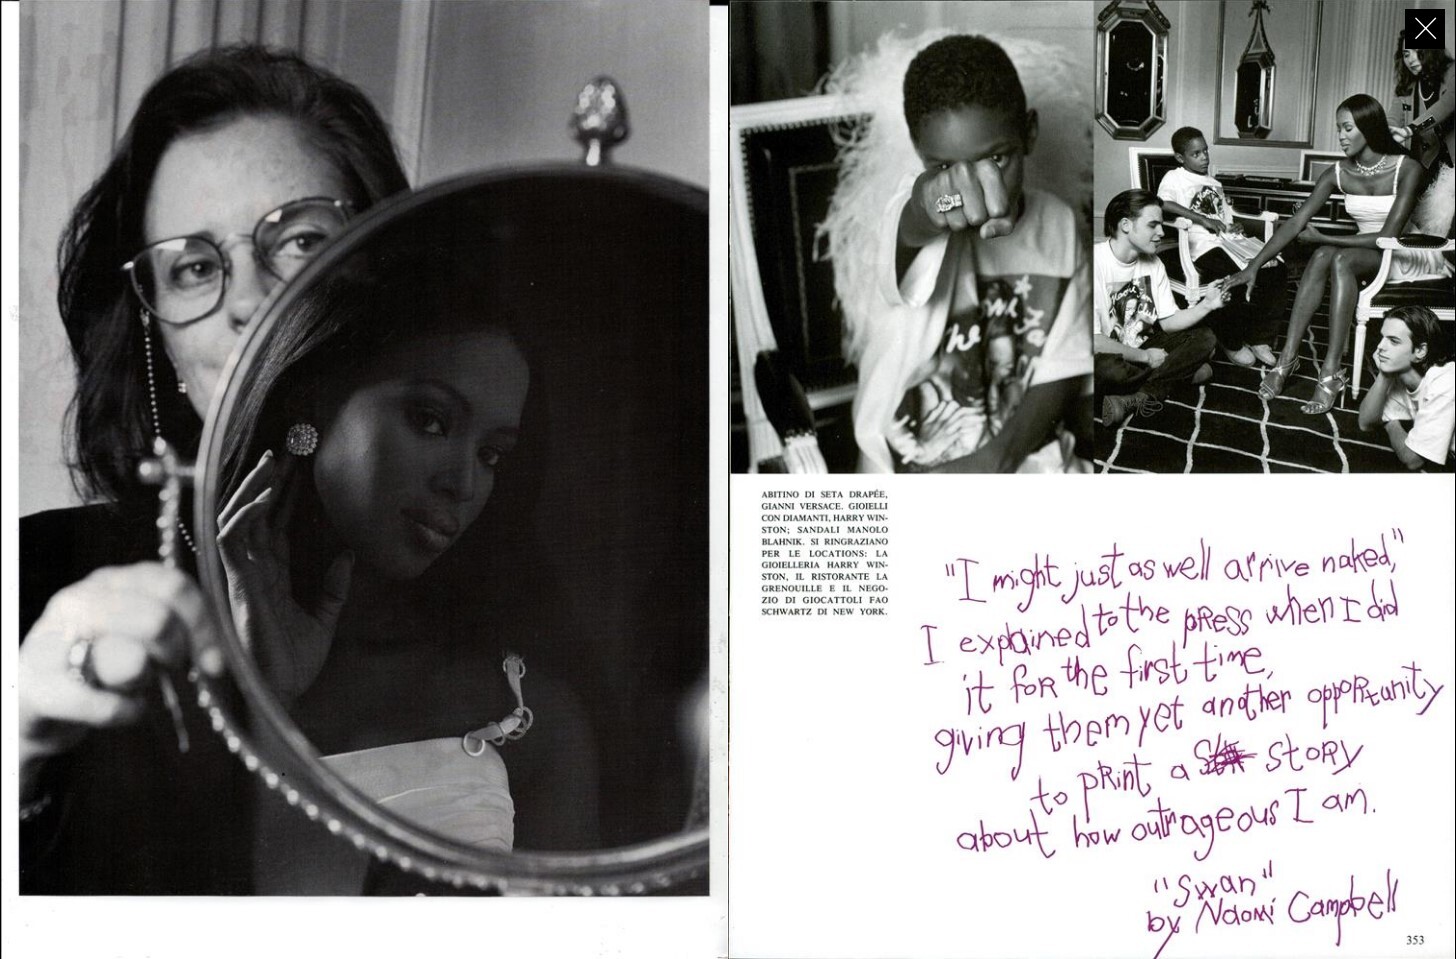 ABITINO DI SETA DRAPÉE,
GIANNI VERSACE. GIOIELLI
CON DIAMANTI, HARRY WIN-
STON; SANDALI MANOLO
BLAHNIK. SI RINGRAZIANO
PER LE LOCATIONS: LA
GIOIELLERIA HARRY WIN-
STON, IL RISTORANTE LA
GRENOUILLE E IL NEGO-
ZIO DI GIOCATTOLI FAO
SCHWARTZ DI NEW YORK.
"I might just as well arrive naked,"
I explained to the press when I did
it for the first time,
giving them yet another opportunity
to print a story
about how outrageous I am.
"Swan"
by Naomi Campbell
353